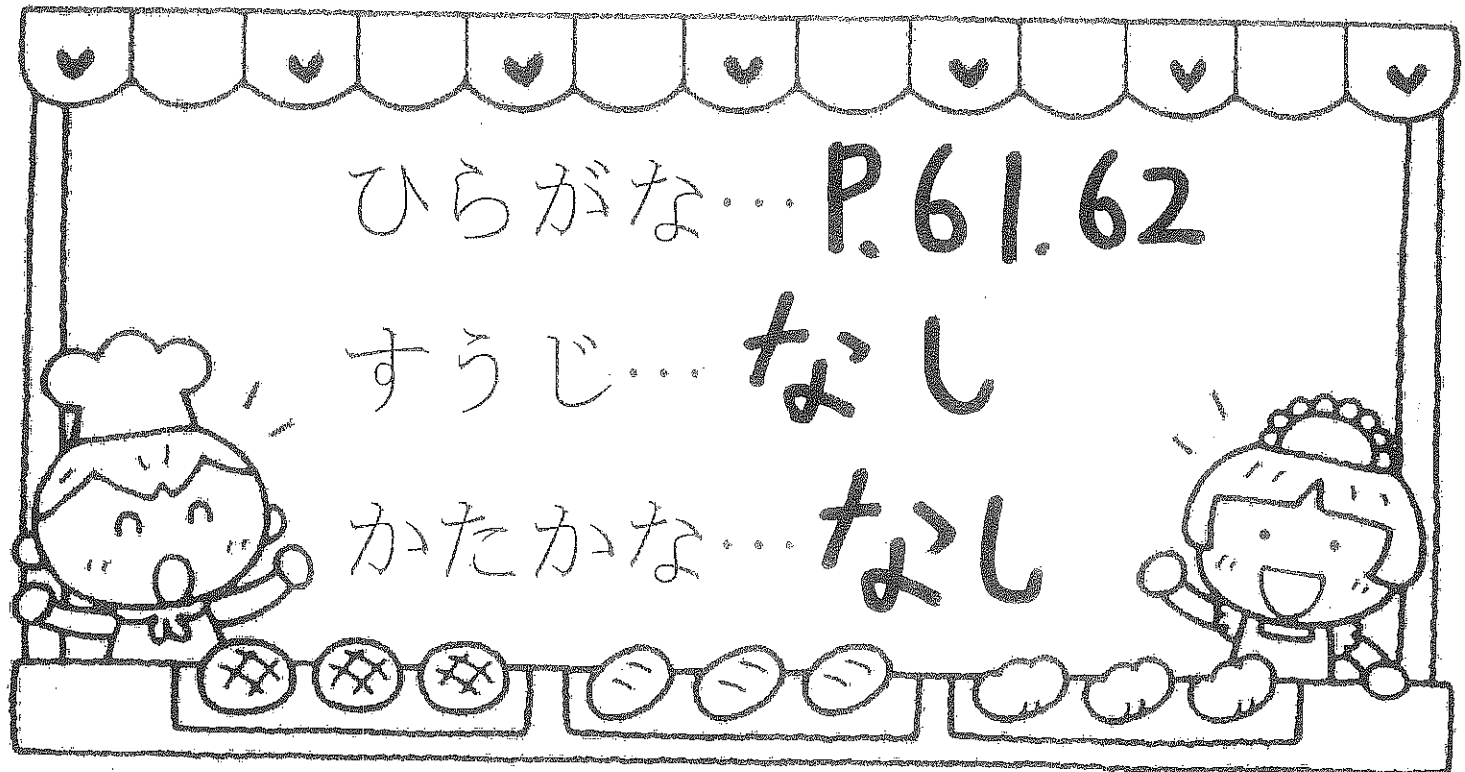 ひらがな…P.61.62
すうじ…なし
かたかな…なし